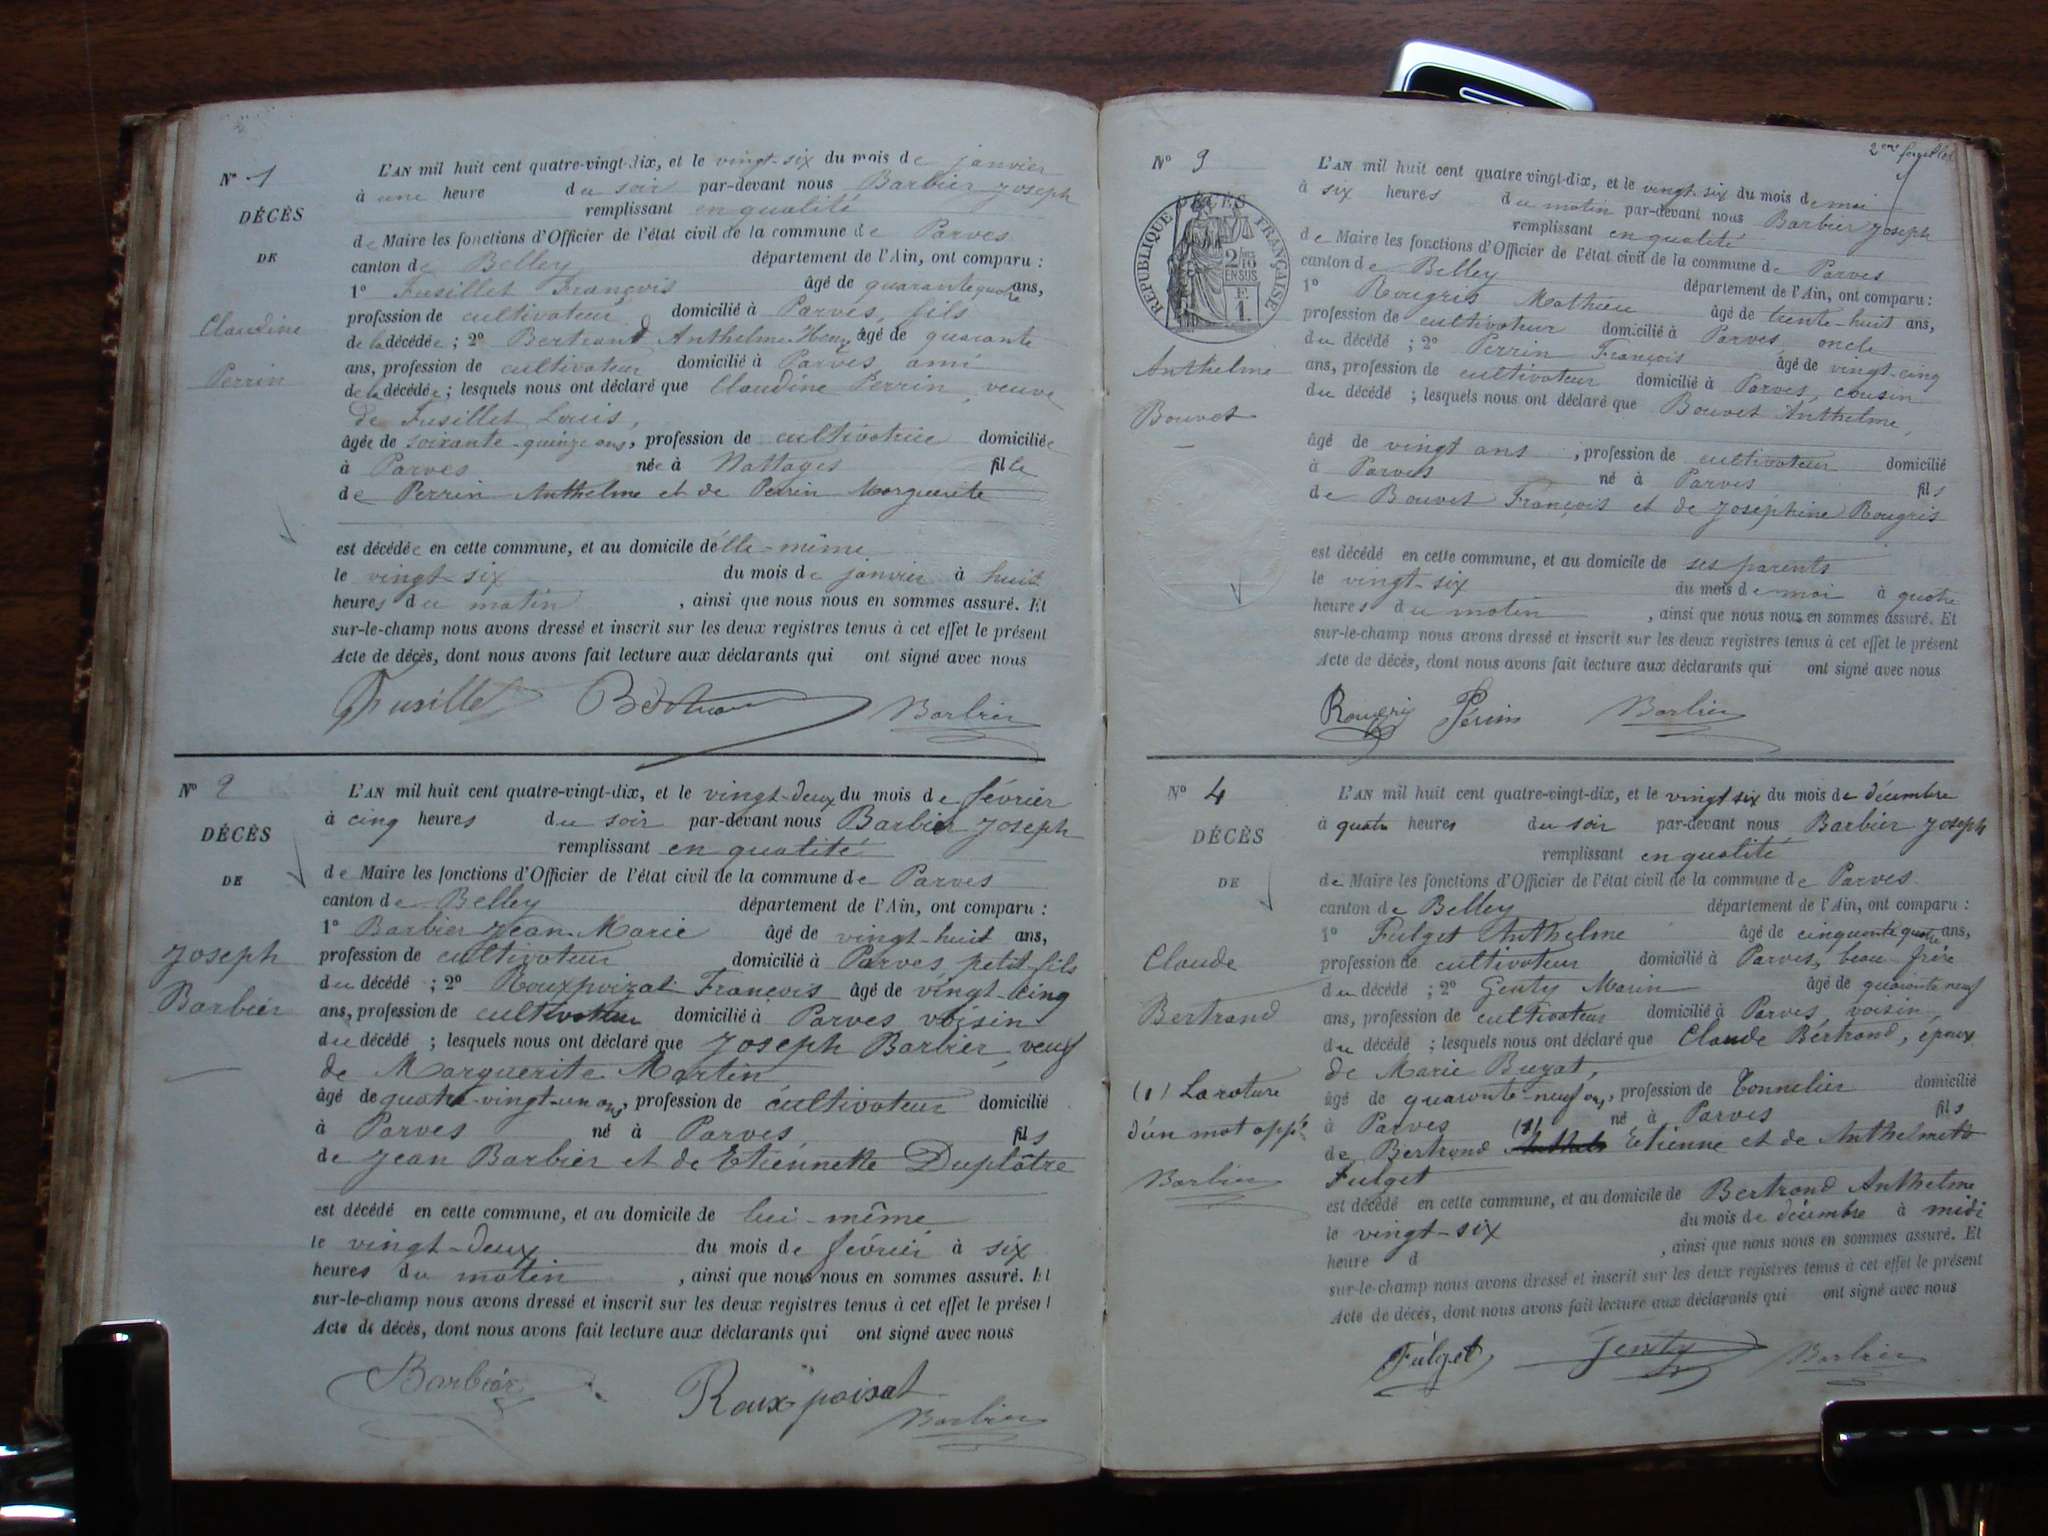 N° 1
DÉCÈS
DE
Claudine
Perrin
L'AN mil huit cent quatre-vingt-dix, et le vingt-six du mois de janvier
à une heure du soir par-devant nous Barbier Joseph
remplissant en qualité
de Maire les fonctions d'Officier de l'état civil de la commune de Parves
canton de Belley département de l'Ain, ont comparu :
1° Fusillet François âgé de quarante quatre ans,
profession de cultivateur domicilié à Parves, fils
de la décédée ; 2° Bertrand Anthelme Henry âgé de quarante
ans, profession de cultivateur domicilié à Parves ami
de la décédée ; lesquels nous ont déclaré que Claudine Perrin, veuve
de Fusillet Louis,
âgée de soixante-quinze ans, profession de cultivatrice domiciliée
à Parves née à Nattages fille
de Perrin Anthelme et de Perrin Marguerite
est décédée en cette commune, et au domicile d'elle-même
le vingt-six du mois de janvier à huit
heures du matin , ainsi que nous nous en sommes assuré. Et
sur-le-champ nous avons dressé et inscrit sur les deux registres tenus à cet effet le présent
Acte de décès, dont nous avons fait lecture aux déclarants qui ont signé avec nous
Fusillet Barbier
N° 2
DÉCÈS
DE
Joseph
Barbier
L'AN mil huit cent quatre-vingt-dix, et le vingt-deux du mois de février
à cinq heures du soir par-devant nous Barbier Joseph
remplissant en qualité
de Maire les fonctions d'Officier de l'état civil de la commune de Parves
canton de Belley département de l'Ain, ont comparu :
1° Barbier Jean-Marie âgé de vingt-huit ans,
profession de cultivateur domicilié à Parves, petit-fils
du décédé ; 2° Rouxpoizat François âgé de vingt-cinq
ans, profession de cultivateur domicilié à Parves voisin
du décédé ; lesquels nous ont déclaré que Joseph Barbier, veuf
de Marguerite Martin
âgé de quatre-vingt-un ans, profession de cultivateur domicilié
à Parves né à Parves, fils
de Jean Barbier et de Etiennette Duplâtre
est décédé en cette commune, et au domicile de lui-même
le vingt-deux du mois de février à six
heures du matin , ainsi que nous nous en sommes assuré. Et
sur-le-champ nous avons dressé et inscrit sur les deux registres tenus à cet effet le présent
Acte de décès, dont nous avons fait lecture aux déclarants qui ont signé avec nous
Barbier Roux-poisat
Barbier
2me feuillet
N° 3
DÉCÈS
RÉPUBLIQUE FRANÇAISE
2/10 EN SUS
F.
1.
Anthelme
Bouvet
L'AN mil huit cent quatre vingt-dix, et le vingt-six du mois de mai
à six heures du matin par-devant nous Barbier Joseph
remplissant en qualité
de Maire les fonctions d'Officier de l'état civil de la commune de Parves
canton de Belley département de l'Ain, ont comparu :
1° Rougris Mathieu âgé de trente-huit ans,
profession de cultivateur domicilié à Parves, oncle
du décédé ; 2° Perrin François âgé de vingt-cinq
ans, profession de cultivateur domicilié à Parves, cousin
du décédé ; lesquels nous ont déclaré que Bouvet Anthelme,
âgé de vingt ans , profession de cultivateur domicilié
à Parves né à Parves fils
de Bouvet François et de Joséphine Rougris
est décédé en cette commune, et au domicile de ses parents
le vingt-six du mois de mai à quatre
heures du matin , ainsi que nous nous en sommes assuré. Et
sur-le-champ nous avons dressé et inscrit sur les deux registres tenus à cet effet le présent
Acte de décès, dont nous avons fait lecture aux déclarants qui ont signé avec nous
Rougris Perrin Barbier
N° 4
DÉCÈS
DE
Claude
Bertrand
(1) La rature
d'un mot app.ée
Barbier
L'AN mil huit cent quatre-vingt-dix, et le vingt six du mois de décembre
à quatre heures du soir par-devant nous Barbier Joseph
remplissant en qualité
de Maire les fonctions d'Officier de l'état civil de la commune de Parves
canton de Belley département de l'Ain, ont comparu :
1° Fulget Anthelme âgé de cinquante quatre ans,
profession de cultivateur domicilié à Parves, beau-frère
du décédé ; 2° Genty Marin âgé de quarante neuf
ans, profession de cultivateur domicilié à Parves, voisin
du décédé ; lesquels nous ont déclaré que Claude Bertrand, époux
de Marie Buzat,
âgé de quarante-neuf ans, profession de Tonnelier domicilié
à Parves né à Parves fils
de Bertrand (1) Etienne et de Anthelmette
Fulget
est décédé en cette commune, et au domicile de Bertrand Anthelme
le vingt-six du mois de décembre à midi
heure d , ainsi que nous nous en sommes assuré. Et
sur-le-champ nous avons dressé et inscrit sur les deux registres tenus à cet effet le présent
Acte de décès, dont nous avons fait lecture aux déclarants qui ont signé avec nous
Fulget Genty Barbier